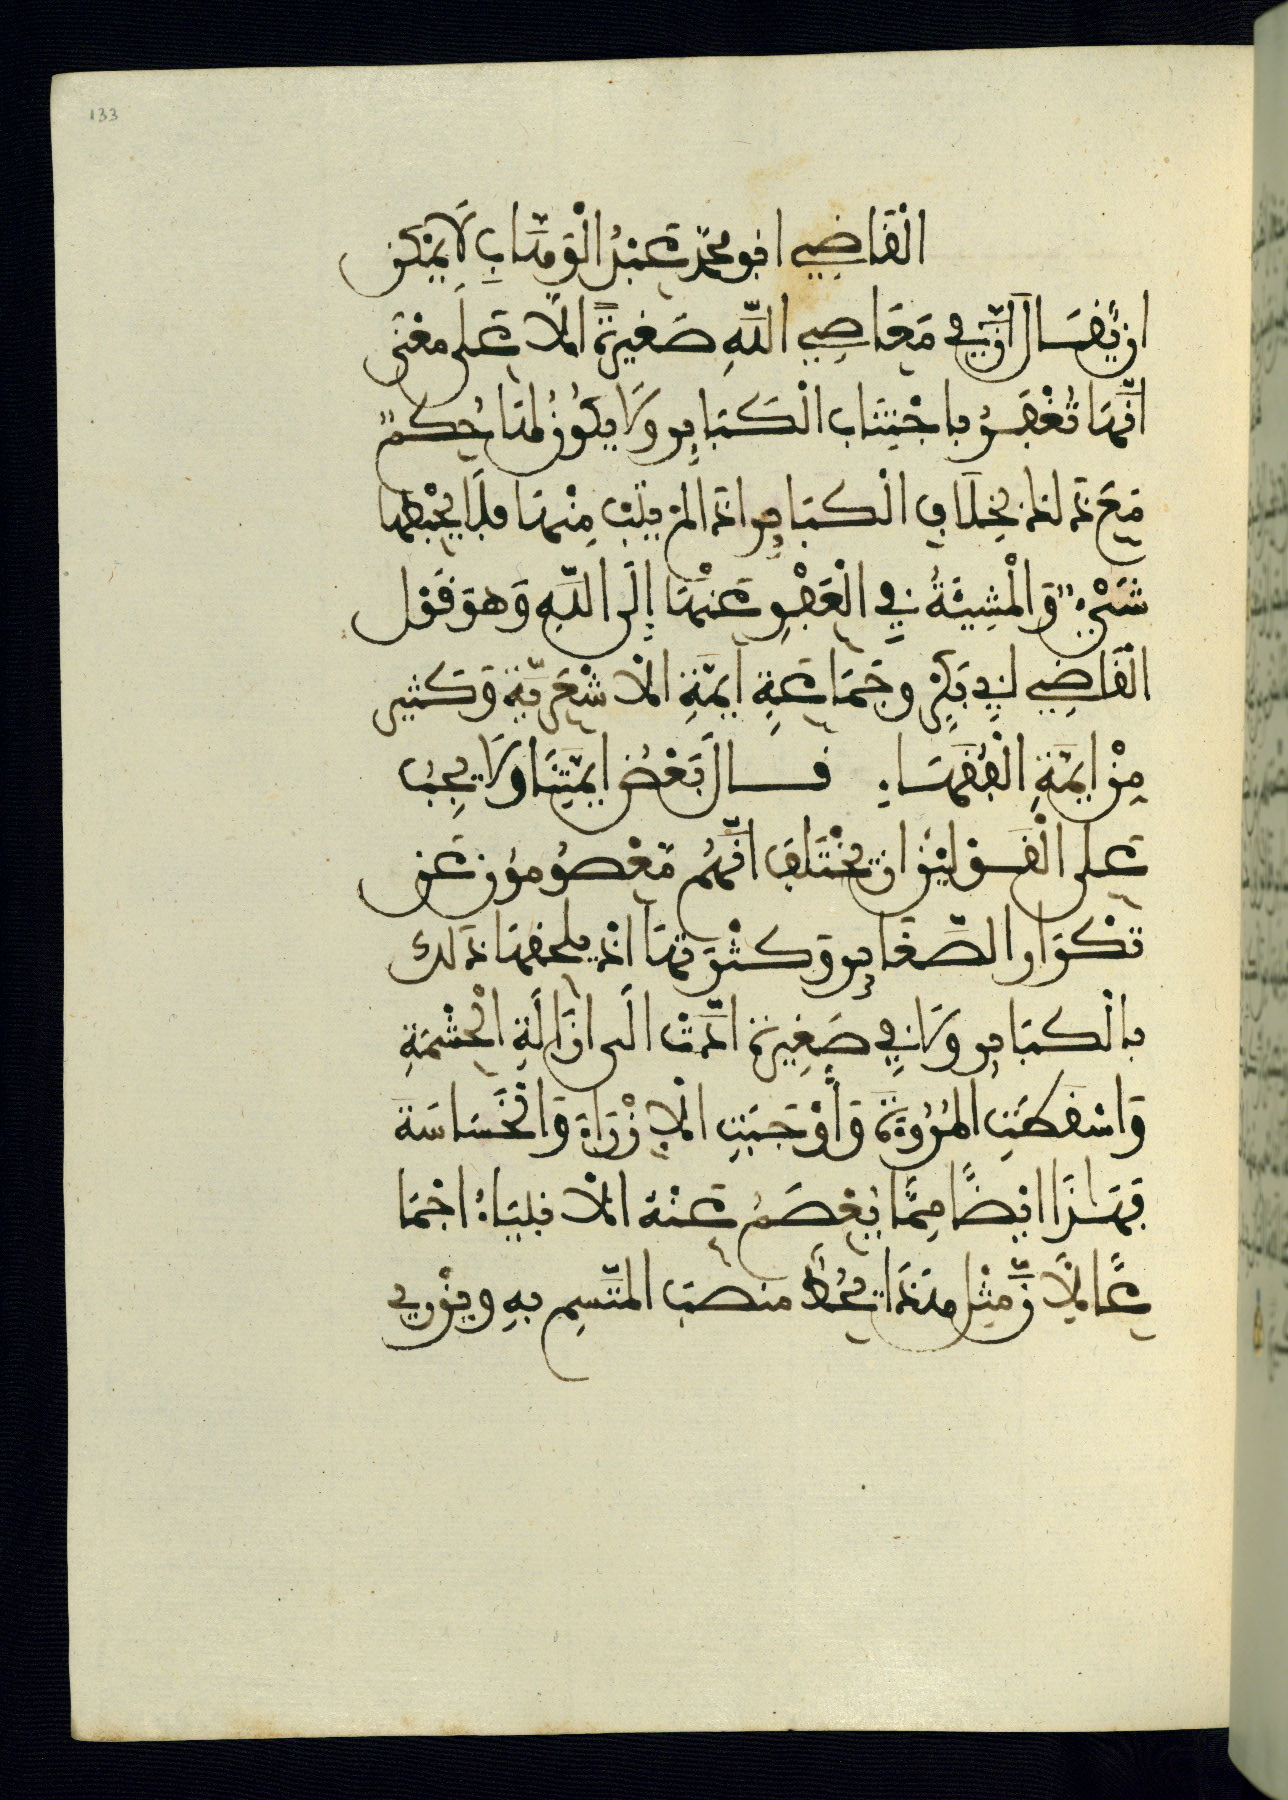 133
الْقَاضِي ابو محمّد عَبْدُ الْوَهَّابِ لَا يُمْكِن
ان يُّقَالَ انّ فِي مَعَاصِي اللَّهِ صَغِيرَةً الّا عَلَى مَعْنَى
انَّهَا تُغْفَرُ باجْتِنَابِ الْكَبَايِرِ وَلَا يَكُونُ لهَا حُكمٌ
مَعَ ذَلكَ بِخِلَافِ الْكَبَايِرِ اذَا لَمْ يتُبْ مِنْهَا فلَا يُحْبِطُهَا
شَيْءٌ وَالْمَشِيئَةُ فِي الْعَفْوِ عَنْهَا إِلَى اللَّهِ وَهُوَ قَوْل
الْقَاضِي ابِي بَكْرٍ وجَمَاعَةِ ايمَّةِ الَاشْعَرِيَّةِ وَكَثِير
مِنْ ايمَّةِ الْفُقَهَاءِ قــالَ بَعْضُ ايمَّتِنَا وَلَا يَجِبُ
عَلَى الْقَوْلَيْنِ ان يُّخْتَلَفَ انَّهُم مَعْصُومُونَ عَن
تَكْرَارِ الصَّغَايِرِ وَكَثْرَتِهَا اذْ يُلْحِقُهَا ذَلك
بالْكَبَايِرِ وَلَا فِي صَغِيرَةٍ ادَّتْ الَى ازَالَةِ الْحِشْمَةِ
وَاسْقَطَتِ الْمُرُوءَةَ وَأَوْجَبَتِ الْإِزْرَاءَ وَالْخَسَاسَةَ
فَهَذَا ايْضًا مِمَّا يُعْصَمُ عَنْهُ الَانبِيَاءُ اجْمَا
عًا لِأَنَّ مِثْلَ هَذَا يَحُطُّ منصبَ المتَّسِمِ بِهِ ويُزْرِي